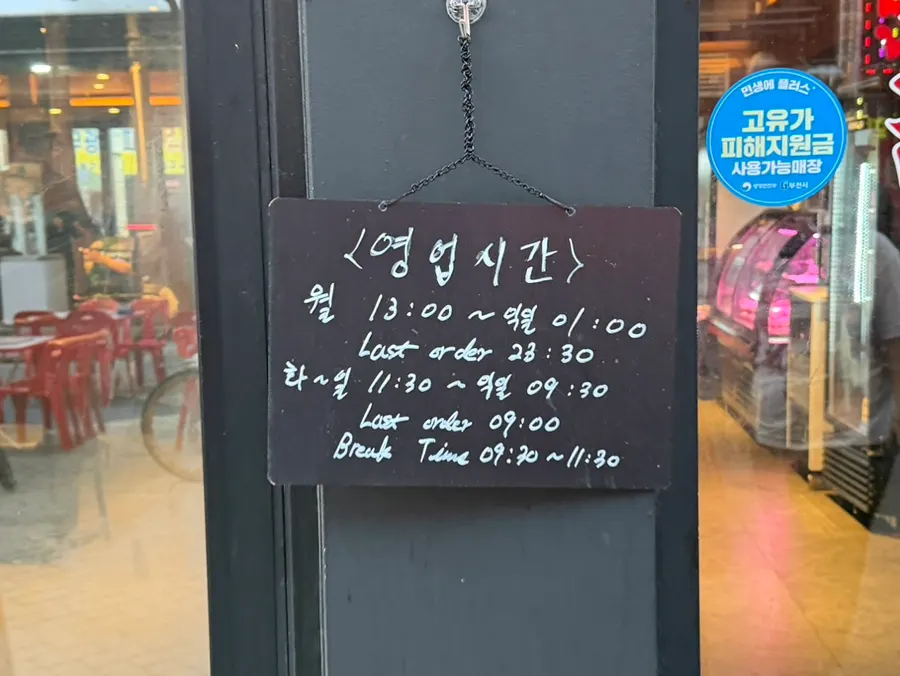 <영업시간>
월 13:00 ~ 익월 01:00
Last order 23:30
화~일 11:30 ~ 익월 09:30
Last order 09:00
Break Time 09:30 ~ 11:30
민생에 플러스+
고유가
피해지원금
사용가능매장
행정안전부 부천시